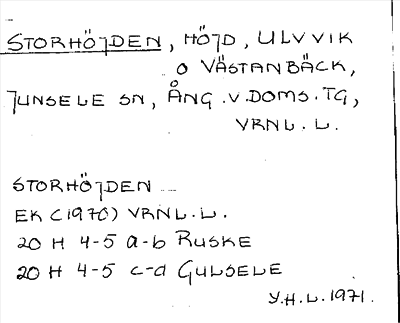 STORHÖJDEN, HÖJD, ULVVIK
O VÄSTANBÄCK,
JUNSELE SN, ÅNG.V.DOMS.TG,
VRNL.L.
STORHÖJDEN
EK (1970) VRNL.L.
20 H 4-5 a-b RUSKE
20 H 4-5 c-d GULSELE
Y.H.L.1971.